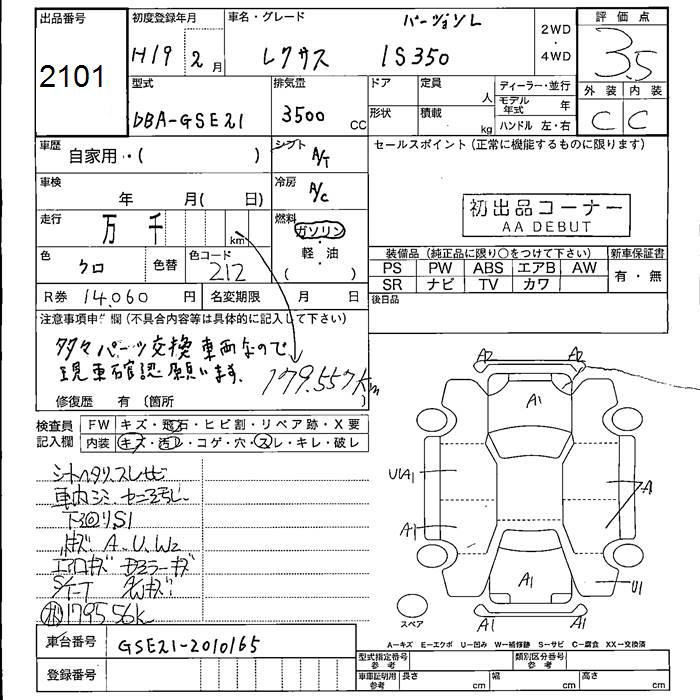 出品番号
2101
初度登録年月
H19 2月
車名・グレード
バージョンL
レクサス IS350
2WD
・
4WD
評価点
3.5
外装 内装
C C
型式
DBA-GSE21
排気量
3500 CC
ドア
形状
定員
人
積載
kg
ディーラー・並行
モデル年式 年
ハンドル 左・右
車歴
自家用・( )
シフト
A/T
セールスポイント(正常に機能するものに限ります)
車検
年 月( 日)
冷房
A/C
初出品コーナー
AA DEBUT
走行
万 千 km
燃料
ガソリン
・
軽・油
( )
色
クロ
色替
色コード
212
装備品(純正品に限り○をつけて下さい)
PS PW ABS エアB AW
SR ナビ TV カワ
新車保証書
有・無
後日品
R券 14,060 円
名変期限 月 日
注意事項申告欄(不具合内容等は具体的に記入して下さい)
多々パーツ交換車両なので
現車確認願います.
179.557km
修復歴 有(箇所
検査員
記入欄
FW キズ・飛石・ヒビ割・リペア跡・X要
内装 キズ・汚レ・コゲ・穴・スレ・キレ・破レ
シートヘタリ.スレ
車内シミ
下回りS1
キズ. A.U.W2
エアロキズ ドアミラーキズ
A/Wキズ
179556k
車台番号
GSE21-2010165
登録番号
A2 A2
A1
U1A1
A
A1
A1
U1
A1 A1
スペア
A－キズ E－エクボ U－凹み W－補修跡 S－サビ C－腐食 XX－交換済
型式指定番号
参考
類別区分番号
参考
車庫証明用
参考
長さ cm
幅 cm
高さ cm